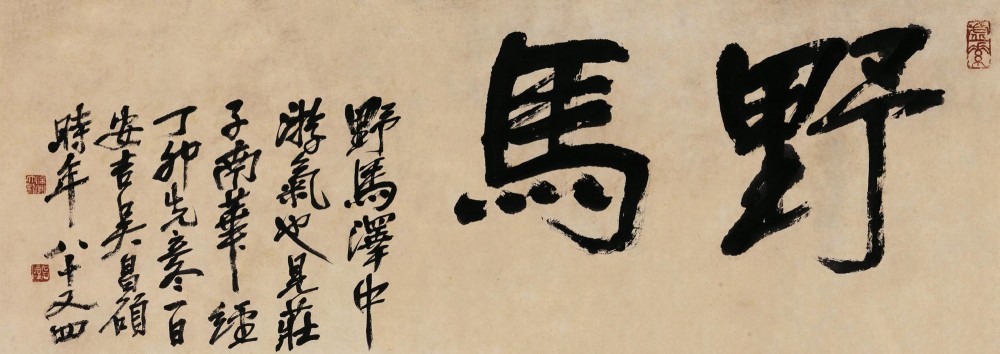 野馬
野馬澤中
游氣也見莊
子南華經
丁卯先立冬一日
安吉吳昌碩
時年八十又四